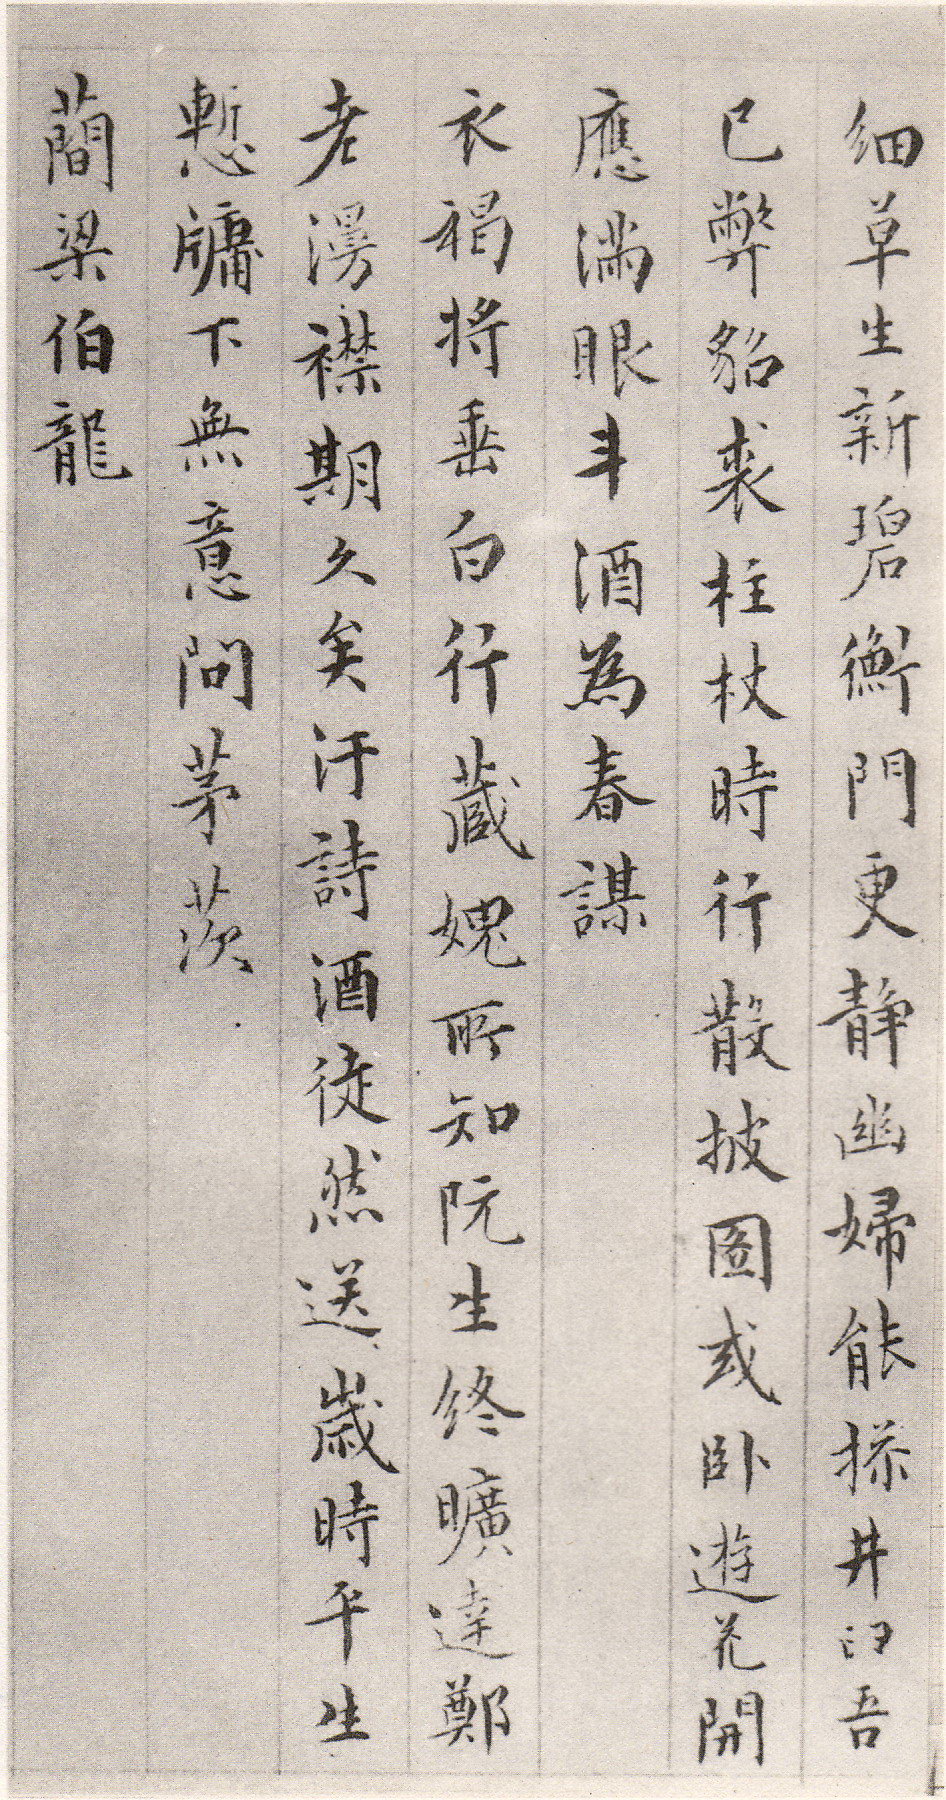 細草生新碧衡門更靜幽婦能操井臼吾
已弊貂裘柱杖時行散披圖或卧遊花開
應滿眼斗酒為春謀
衣褐將垂白行藏媿所知阮生終曠達鄭
老漫襟期久矣汙詩酒徒然送歲時平生
慙牗下無意問茅茨
蕳梁伯龍